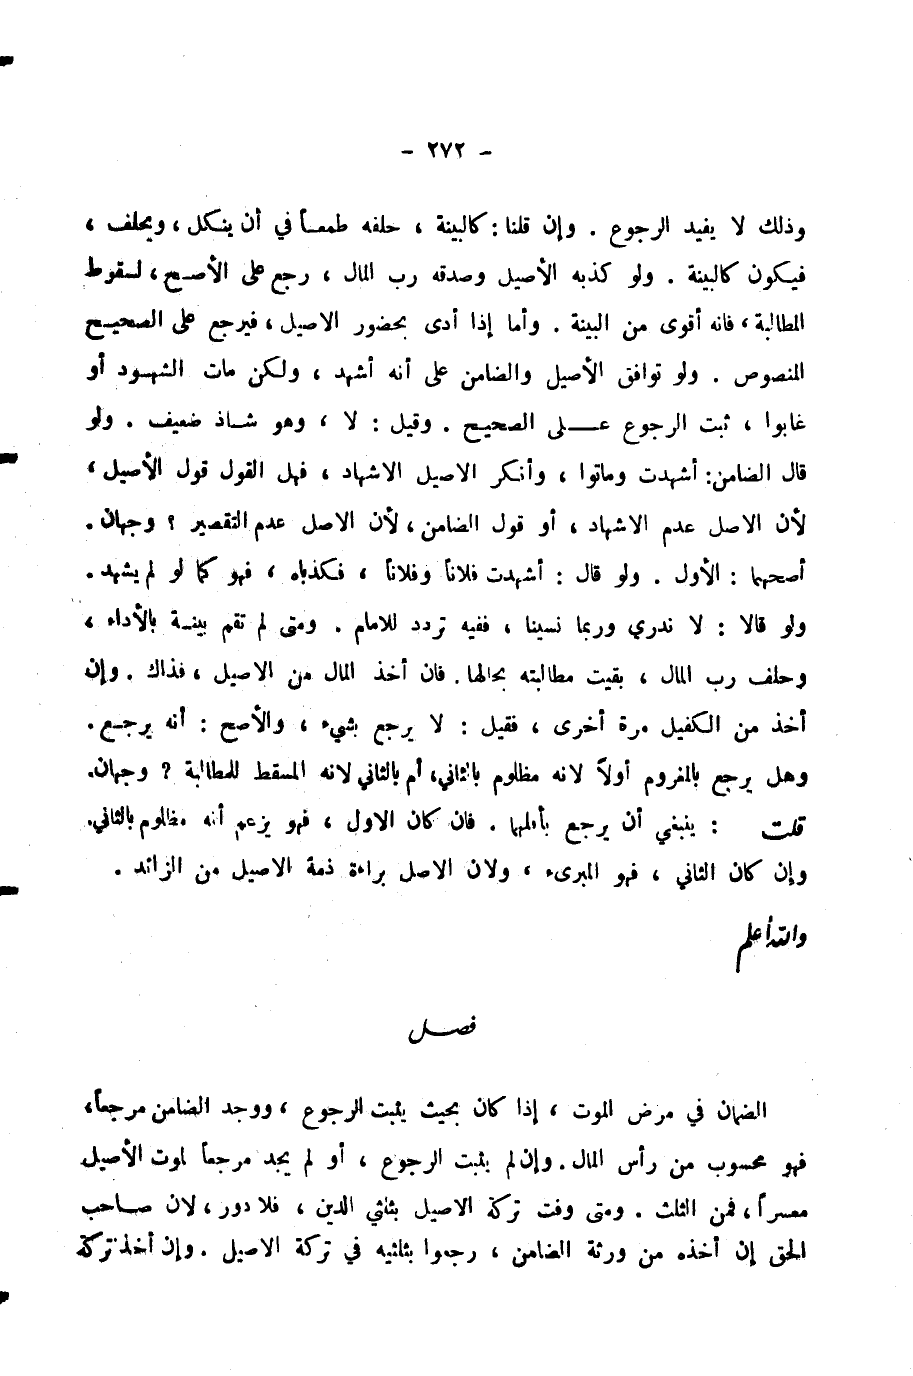 - ٢٧٢ -
وذلك لا يفيد الرجوع . وإن قلنا : كالبينة ، حلفه طمعاً في أن ينكل ، ويحلف ،
فيكون كالبينة . ولو كذبه الأصيل وصدقه رب المال ، رجع على الأصح ، لسقوط
المطالبة ، فانه أقوى من البينة . وأما إذا أدى بحضور الاصيل ، فيرجع على الصحيح
المنصوص . ولو توافق الأصيل والضامن على أنه أشهد ، ولكن مات الشهود أو
غابوا ، ثبت الرجوع على الصحيح . وقيل : لا ، وهو شاذ ضعيف . ولو
قال الضامن : أشهدت وماتوا ، وأنكر الاصيل الاشهاد ، فهل القول قول الأصيل ،
لأن الاصل عدم الاشهاد ، أو قول الضامن ، لأن الاصل عدم التقصير ؟ وجهان .
أصحهما : الأول . ولو قال : أشهدت فلاناً وفلاناً ، فكذباه ، فهو كما لو لم يشهد .
ولو قالا : لا ندري وربما نسينا ، ففيه تردد للامام . ومتى لم تقم بينة بالأداء ،
وحلف رب المال ، بقيت مطالبته بحالها . فان أخذ المال من الاصيل ، فذاك . وإن
أخذ من الكفيل مرة أخرى ، فقيل : لا يرجع بشيء ، والأصح : أنه يرجع .
وهل يرجع بالمغروم أولاً لانه مظلوم بالثاني ، أم بالثاني لانه المسقط للمطالبة ؟ وجهان .
قلت : ينبغي أن يرجع بأقلهما . فان كان الاول ، فهو يزعم أنه مظلوم بالثاني .
وإن كان الثاني ، فهو المبرىء ، ولان الاصل براءة ذمة الاصيل من الزائد .
والله أعلم
فصل
الضمان في مرض الموت ، إذا كان بحيث يثبت الرجوع ، ووجد الضامن مرجعاً ،
فهو محسوب من رأس المال . وإن لم يثبت الرجوع ، أو لم يجد مرجعاً لموت الأصيل
معسراً ، فمن الثلث . ومتى وفت تركة الاصيل بثلثي الدين ، فلا دور ، لان صاحب
الحق إن أخذه من ورثة الضامن ، رجعوا بثلثيه في تركة الاصيل . وإن أخذ تركة